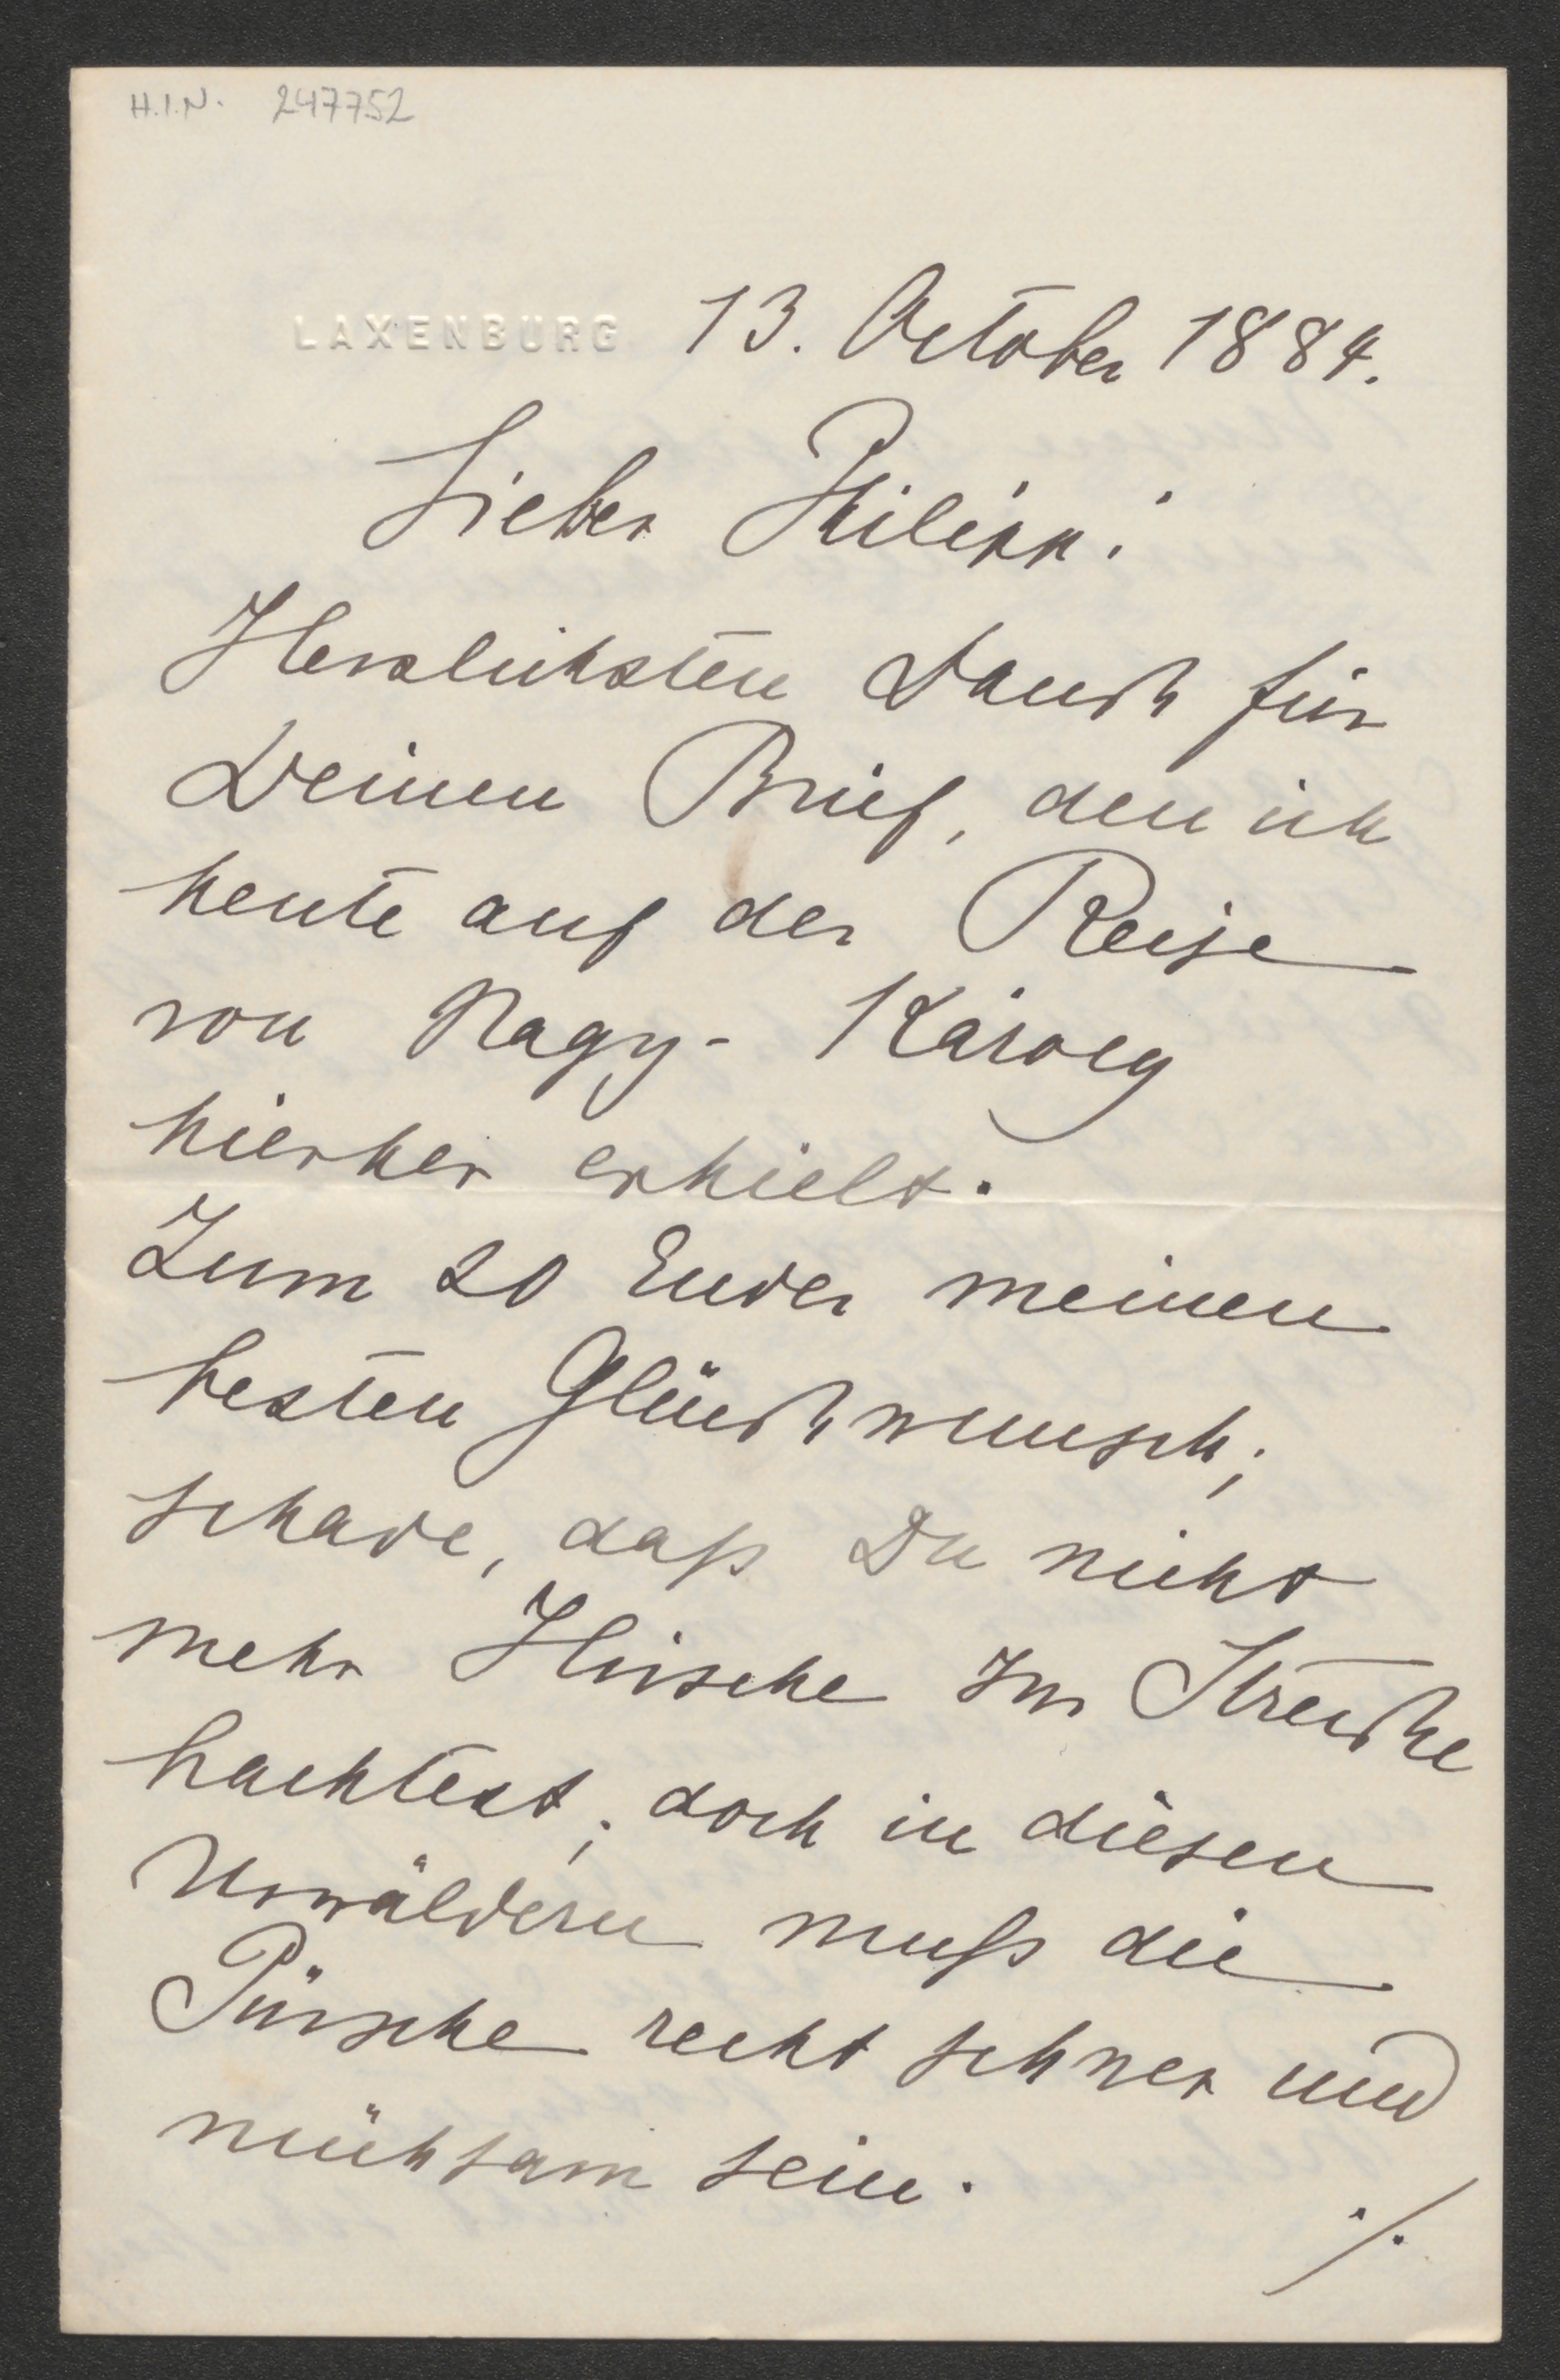 H.I.N. 247752
LAXENBURG 13. October 1884.
Lieber Philipp!
Herzlichsten Dank für
Deinen Brief, den ich
heute auf der Reise
von Nagy-Károly
hierher erhielt.
Zum 20 Ender meinen
besten Glückwunsch;
schade, daß Du nicht
mehr Hirsche zur Strecke
brachtest; doch in diesen
Urwäldern muß die
Pürsche recht schwer und
mühsam sein.
./.